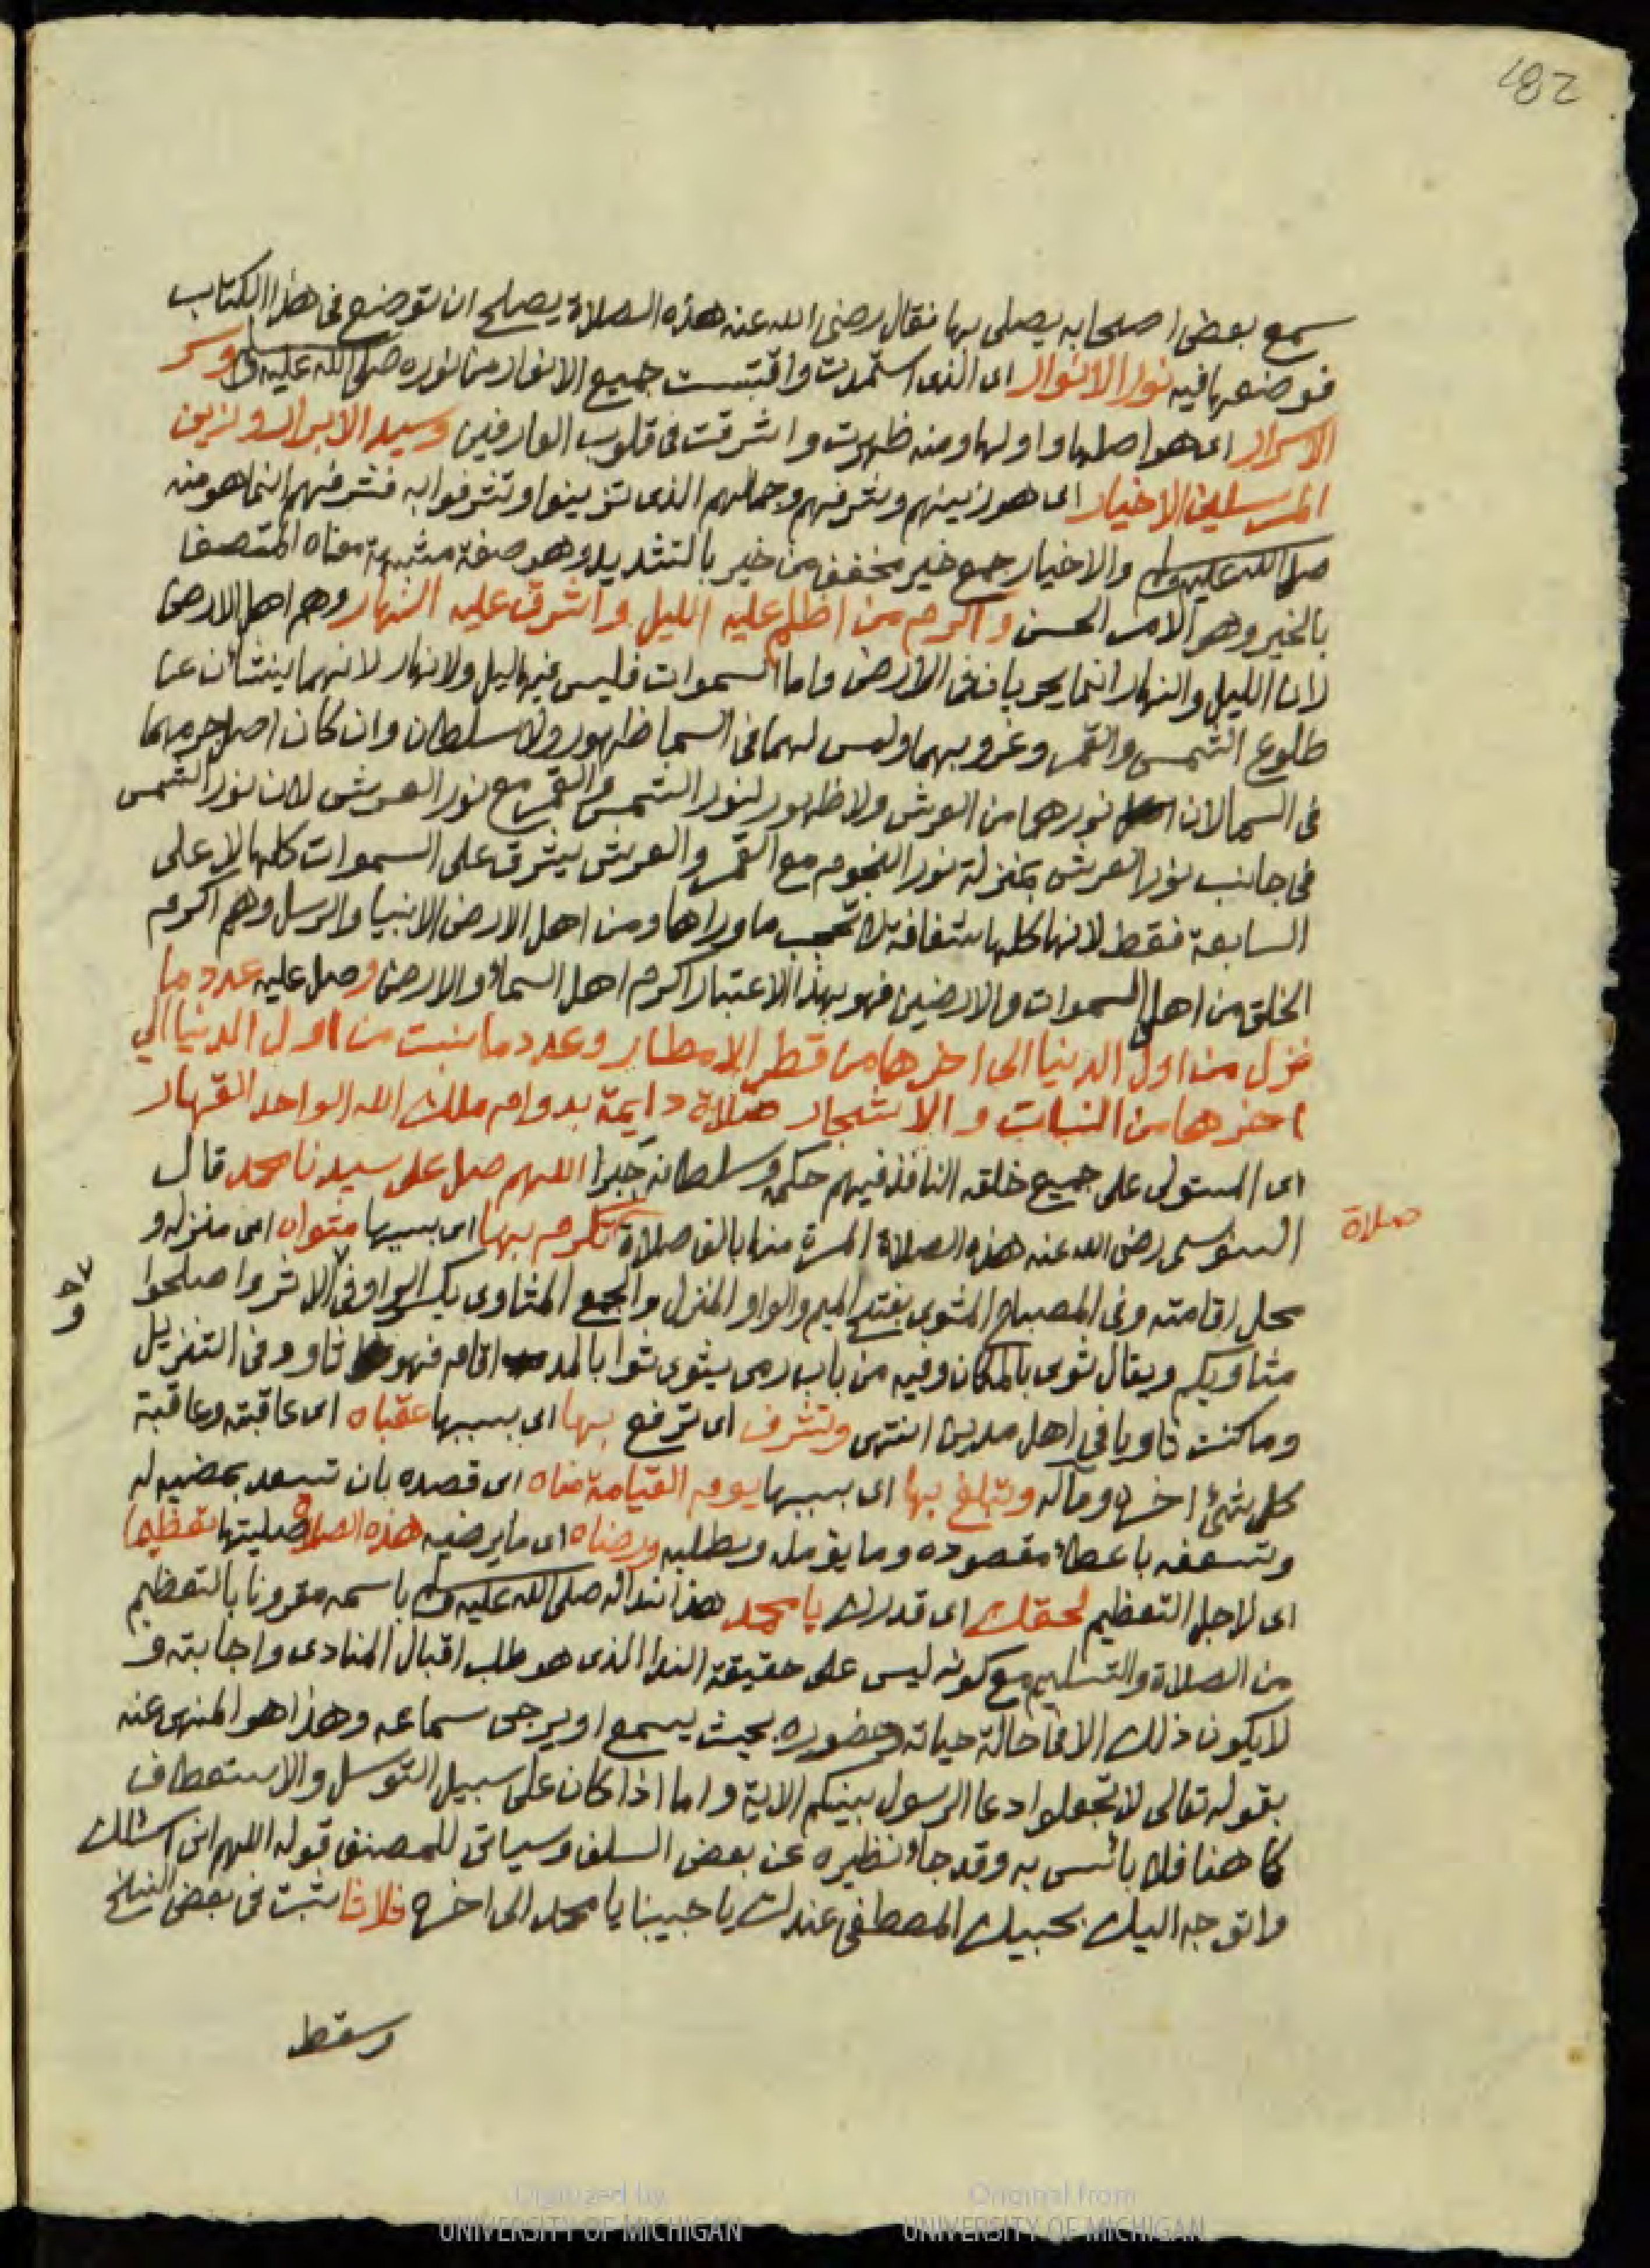 182
سمع بعض اصحابه يصلى بها فقال رضى الله عنه هذه الصلاة يصلح ان توضع فى هذا الكتاب
فوضعها فيه نور الانوار اى الذى استمدت واقتبست جميع الانوار من نوره صلى الله عليه وسلم وسر
الاسرار اى هو اصلها واولها ومنه ظهرت واشرقت فى قلوب العارفين وسيد الابرار وزين
المرسلين الاخيار اى هو زينهم وشرفهم وجمالهم الذى تزينوا وتشرفوا به فشرفهم انما هو منه
صلى الله عليه وسلم والاخيار جمع خير مخفف من خير بالتشديد وهو صفة مشبهة معناه المتصف
بالخير وهو الامر الحسن واكرم من اظلم عليه الليل واشرق عليه النهار وهم اهل الارض
لان الليل والنهار انما يجريان فى الارض واما السموات فليس فيها ليل ولا نهار لانهما ينشأن عن
طلوع الشمس والقمر وغروبهما وليس لهما فى السما ظهور ولا سلطان وان كان اصل جرمهما
فى السما لان نورهما من العرش ولا ظهور لنور الشمس والقمر مع نور العرش لان نور الشمس
فى جانب نور العرش بمنزلة نور النجوم مع القمر والعرش يشرق على السموات كلها لا على
السابعة فقط لانها كلها شفافة لا تحجب ما وراها ومن اهل الارض الانبيا والرسل وهم اكرم
الخلق من اهل السموات والارضين فهو بهذا الاعتبار اكرم اهل السماء والارض وصل عليه عدد ما
نزل من اول الدنيا الى اخرها من قطر الامطار وعدد ما نبت من اول الدنيا الي
اخرها من النبات والاشجار صلاة دايمة بدوام ملك الله الواحد القهار
اى المستولى على جميع خلقه النافذ فيهم حكمه وسلطانه جبرا اللهم صل على سيدنا محمد قال
السنوسى رضى الله عنه هذه الصلاة المرة منها بالف صلاة تكرم بها اى بسببها مثواه اى منزله و
صلاة
محل اقامته وفى المصباح المثوى بفتح الميم والواو المنزل والجمع المثاوى بكسر الواو وفى الاثر واصلحوا
مثاويكم ويقال ثوى بالمكان وفيه من باب رمى يثوى ثوا بالمد اقام فهو ثاو وفى التنزيل
وما كنت ثاويا فى اهل مدين انتهى وتشرف اى ترفع بها اى بسببها عقباه اى عاقبته وعاقبة
كل شئ اخره ومآله وتبلغ بها اى بسببها يوم القيامة مناه اى قصده بان تسعد بمضيه له
وتسعفه باعطاء مقصوده وما يؤمله ويطلبه ورضاه اى ما يرضيه هذه الصلاة صليتها تعظيما
اى لاجل التعظيم لحقك اى قدرك يا محمد هذا نداله صلى الله عليه وسلم باسمه مقرونا بالتعظيم
من الصلاة والتسليم مع كونه ليس على حقيقة الندا الذى هو طلب اقبال المنادى واجابته و
لا يكون ذلك الا فى حالة حياته وحضوره بحيث يسمع او يرجى سماعه وهذا هو المنهى عنه
بقوله تعالى لا تجعلوا دعا الرسول بينكم الاية واما اذا كان على سبيل التوسل والاستعطاف
كما هنا فلا بائس به وقد جاء نظيره عن بعض السلف وسياتى للمصنف قوله اللهم انى اسئلك
واتوجه اليك بحبيبك المصطفى عندك يا حبيبنا يا محمد الى اخره ثلاثا ثبت فى بعض النسخ
وسقط
Digitized by
UNIVERSITY OF MICHIGAN
Original from
UNIVERSITY OF MICHIGAN